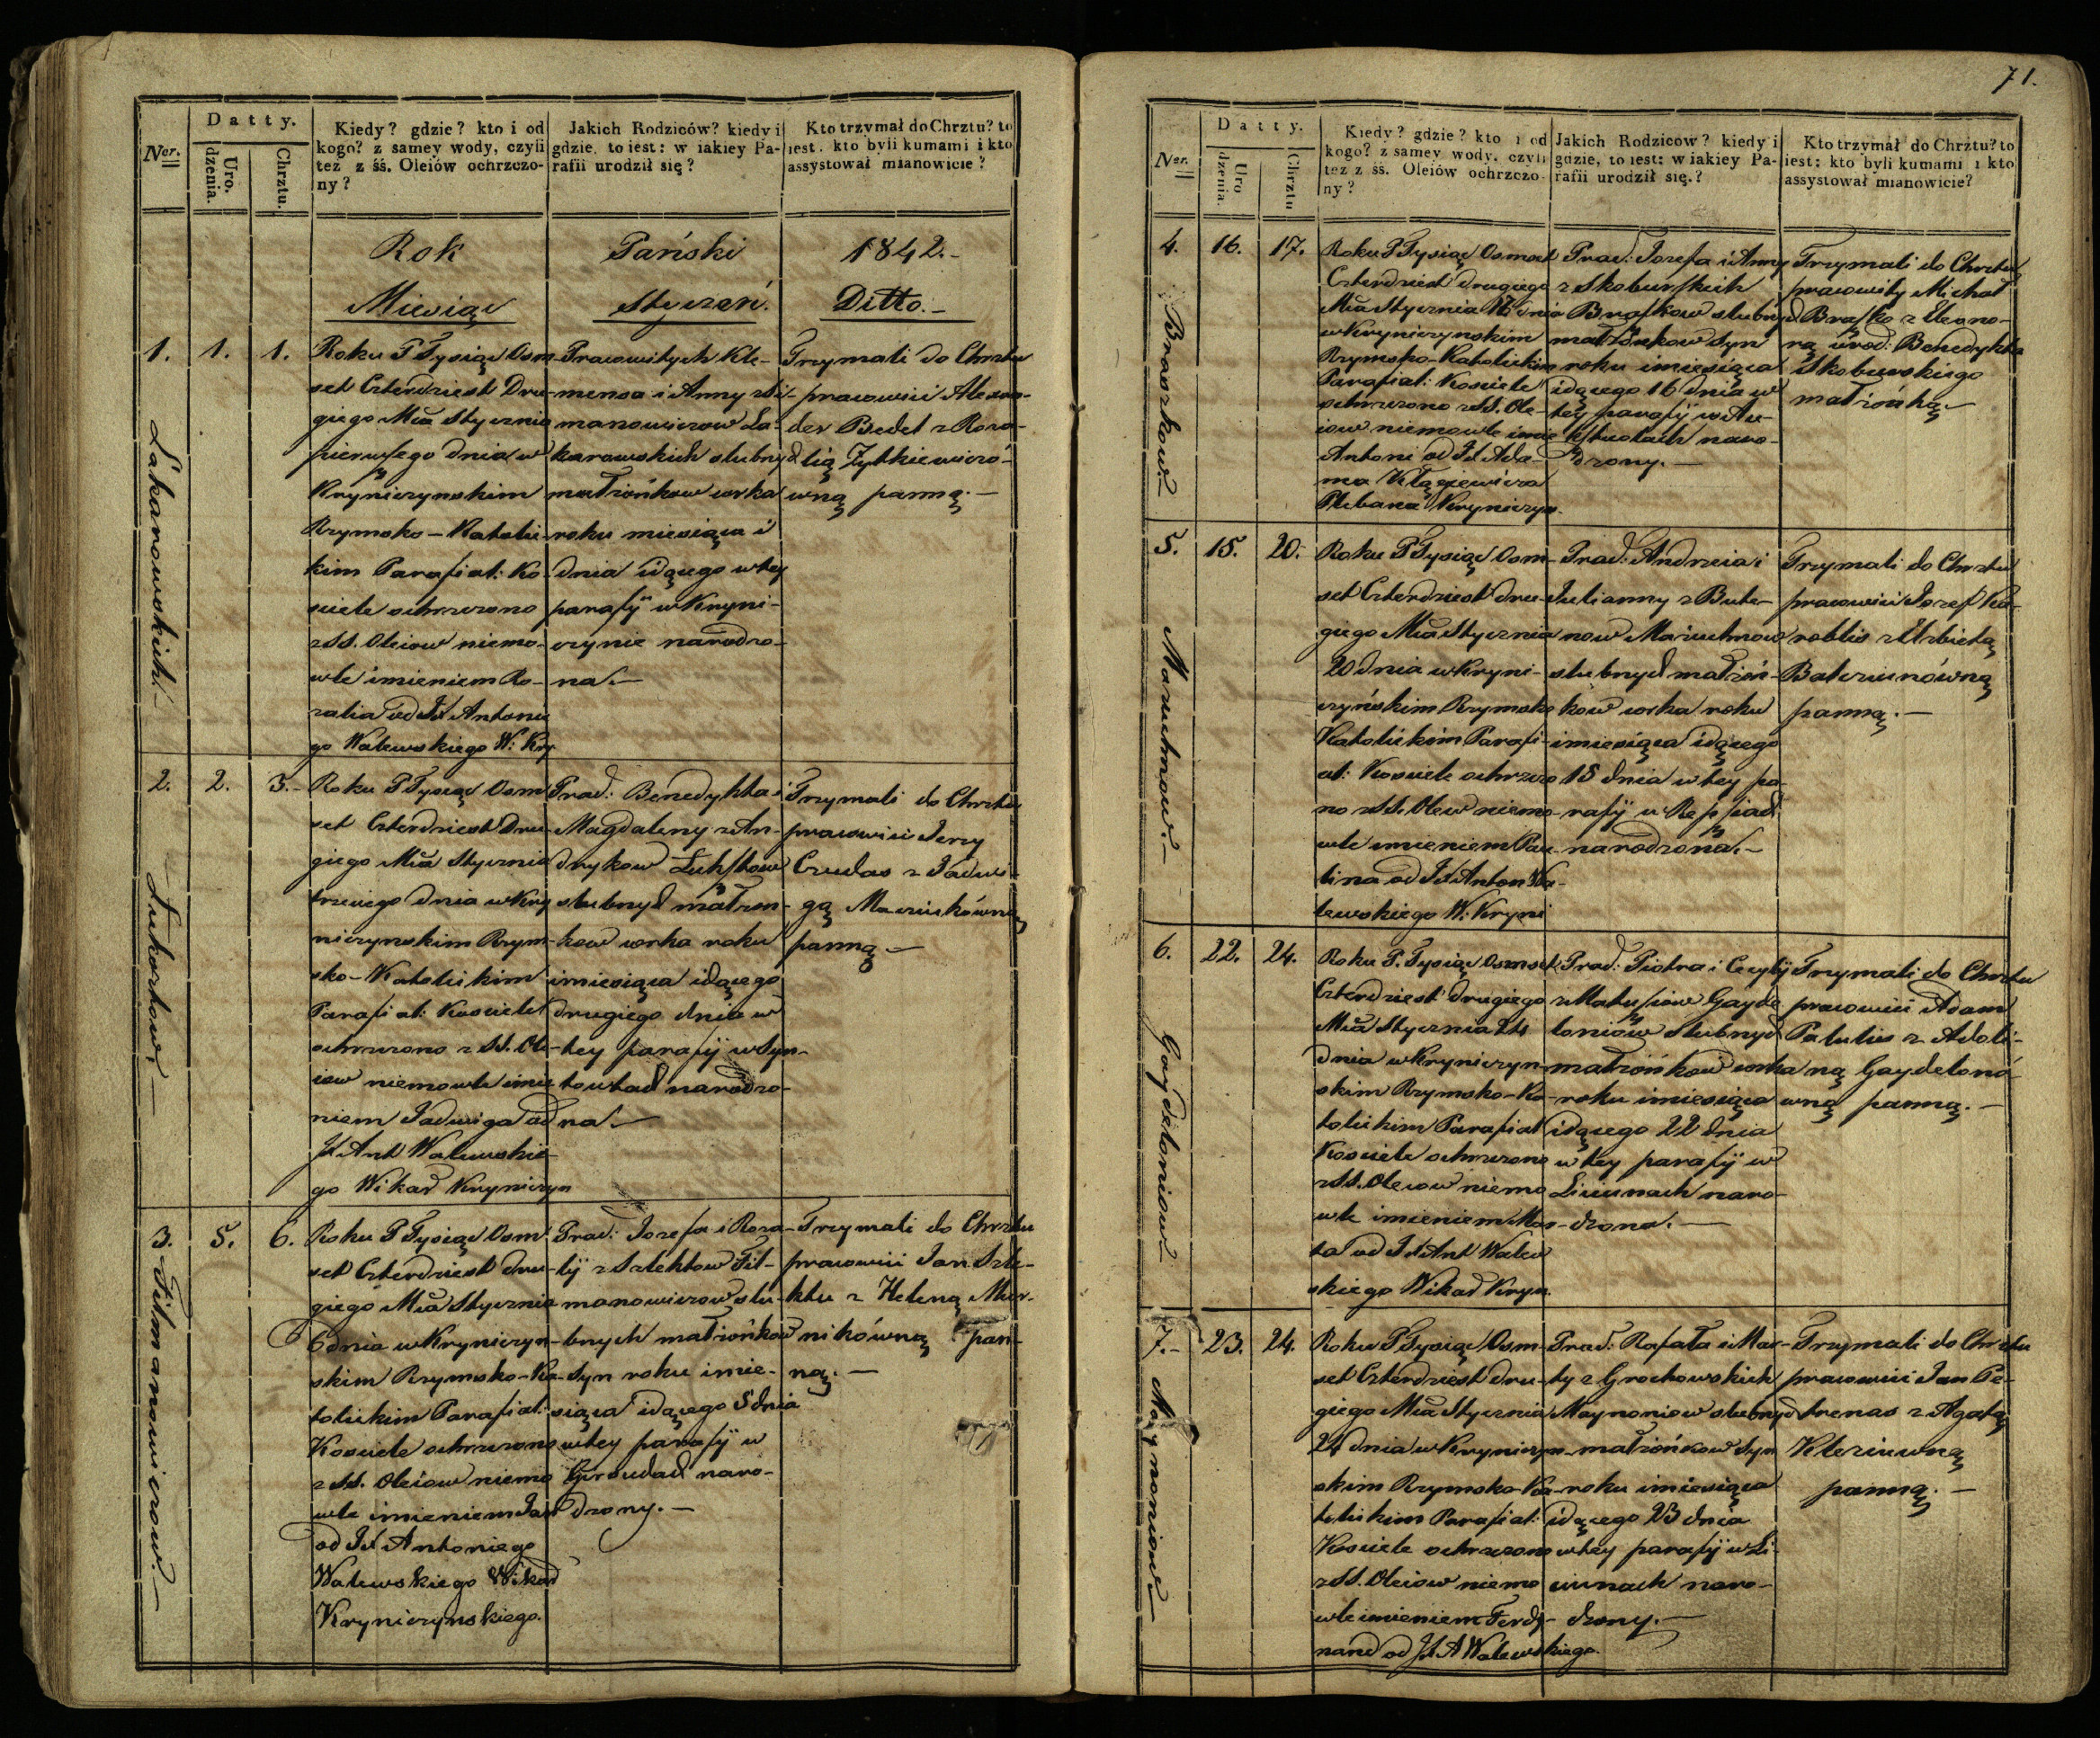 71.
Ner.
Datty.
Uro. dzenia.
Chrztu.
Kiedy? gdzie? kto i od
kogo? z samey wody, czyli
tez z śś. Oleiów ochrzczo-
ny?
Jakich Rodziców? kiedy i
gdzie, to iest: w iakiey Pa-
rafii urodził się?
Kto trzymał do Chrztu? to
iest. kto byli kumami i kto
assystował mianowicie?
Rok Pański 1842.-
Miesiąc Styczeń. Ditto.-
1. 1. 1.
Lakarowskich.-
Roku P Tysiąc Osm-
set Czterdziest Dru-
giego Mca Stycznia
pierwszego dnia w
Kryniczynskim
Rzymsko-Katolic-
kim Parafial: Ko-
sciele ochrzczono
z SS. Oleiow niemo-
wle imieniem Ro-
zalia od Jx Antonie
go Walewskiego W: Kry
Pracowitych Kle-
mensa i Anny z Ti-
manowiczow La-
karowskich slubnych
małżońkow corka
roku miesiąca i
dnia idącego w tey
parafij w Kryni-
czynie narodzo-
na.-
Trzymali do Chrztu
pracowici Alexan-
der Bedet z Roza-
lią Zytkiewiczó-
wną panną.-
2. 2. 3.-
Lukoztow.-
Roku P Tysiąc Osm
set Czterdziest Dru-
giego Mca Stycznia
trzeciego dnia w Kry
niczynskim Rzym-
sko-Katolickim
Parafial: Kosciele
ochrzczono z SS. Ole-
iow niemowle imie
niem Jadwiga od
Jx Ant Walewskie-
go Wikar Kryniczyn
Prac: Benedykta i
Magdaleny z An-
drykow
slubnych małżon-
kow corka roku
i miesiąca idącego
drugiego dnia w
tey parafij w Syn-
towtach narodzo-
na.-
Trzymali do Chrztu
pracowici Jerzy
Czudas z Jadwi-
gą Maciukówną
panną.-
3. 5. 6.
Titmanowiczow.-
Roku P Tysiąc Osm
set Czterdziest dru-
giego Mca Stycznia
6 dnia w Kryniczyn-
skim Rzymsko-Ka-
tolickim Parafial:
Kosciele ochrzczono
z SS. Oleiow niemo
wle imieniem Jan
od Jx Antoniego
Walewskiego Wikar
Kryniczynskiego.
Prac: Jozefa i Roza-
lij z Szlektow Tit-
manowiczow slu-
bnych małżońkow
Syn roku i mie-
siąca idącego 5 dnia
w tey parafij w
naro-
dzony.-
Trzymali do Chrztu
pracowici Jan Szle-
ktu z Heleną Mur-
nikówną pan-
ną.-
Ner.
Datty.
Uro dzenia.
Chrztu
Kiedy? gdzie? kto i od
kogo? z samey wody, czyli
tez z śś. Oleiów ochrzczo-
ny?
Jakich Rodziców? kiedy i
gdzie, to iest: w iakiey Pa-
rafii urodził się.?
Kto trzymał do Chrztu? to
iest: kto byli kumami i kto
assystował mianowicie?
4. 16. 17.
Braszkow.-
Roku P Tysiąc Osmset
Czterdziest drugiego
Mca Stycznia 17 dnia
w Kryniczynskim
Rzymsko-Katolickim
Parafial: Kosciele
ochrzczono z SS. Ole-
iow niemowle imie
Antoni od Jx Ada-
ma
Plebana Kryniczyn.
Prac: Jozefa i Anny
z Skoburskich
Braszkow slubnych
małżonkow Syn
roku i miesiąca
idącego 16 dnia w
tey parafij w Au-
kstuolach naro-
dzony.-
Trzymali do Chrztu
pracowity Michał
Braszko z Eleono-
rą urod: Benedykta
Skoburskiego
małżońką.-
5. 15. 20.
Maciuchnow.-
Roku P Tysiąc Osm-
set Czterdziest dru-
giego Mca Stycznia
20 dnia w Kryni-
czyńskim Rzymsko
Katolickim Parafi-
al: Kosciele ochrzczo
no z SS. Olew niemo-
wle imieniem Pau-
lina od Jx Anton Wa-
lewskiego W: Kryni
Prac: Andrzeia i
Julianny z Bute-
now Maciuchnow
slubnych małżoń-
kow corka roku
i miesiąca idącego
15 dnia w tey pa-
rafij w
narodzona.-
Trzymali do Chrztu
pracowici Jozef Ka-
roblis z Elzbietą
Balczunówną
panną.-
6. 22. 24.
Gaydeloniow-
Roku P. Tysiąc Osmset
Czterdziest drugiego
Mca Stycznia 24
dnia w Kryniczyn-
skim Rzymsko-Ka-
tolickim Parafial
Kosciele ochrzczono
z SS. Oleiow niemo
wle imieniem Mar-
ta od Jx Ant Walew
skiego Wikar Kryn.
Prac: Piotra i Cecylij
z Matusiow Gayde
loniow slubnych
małżońkow corka
roku i miesiąca
idącego 22 dnia
w tey parafij w
Liciunach naro-
dzona.-
Trzymali do Chrztu
pracowici Adam
Palulis z Adoli-
ną Gaydeloná-
wną panną.-
7.- 23. 24.
Maynoniow-
Roku P Tysiąc Osm-
set Czterdziest dru-
giego Mca Stycznia
24 dnia w Kryniczyn-
skim Rzymsko-Ka-
tolickim Parafial:
Kosciele ochrzczono
z SS. Oleiow niemo
wle imieniem Ferdy-
nand od Jx A Walewskiego.
Prac: Rafała i Mar-
ty z Grochowskich
Maynoniow slubnych
małżońkow Syn
roku i miesiąca
idącego 23 dnia
w tey parafij w Li-
ciunach naro-
dzony.-
Trzymali do Chrztu
pracowici Jan Pe-
trenas z Agatą
Kleziuwną
panną.-